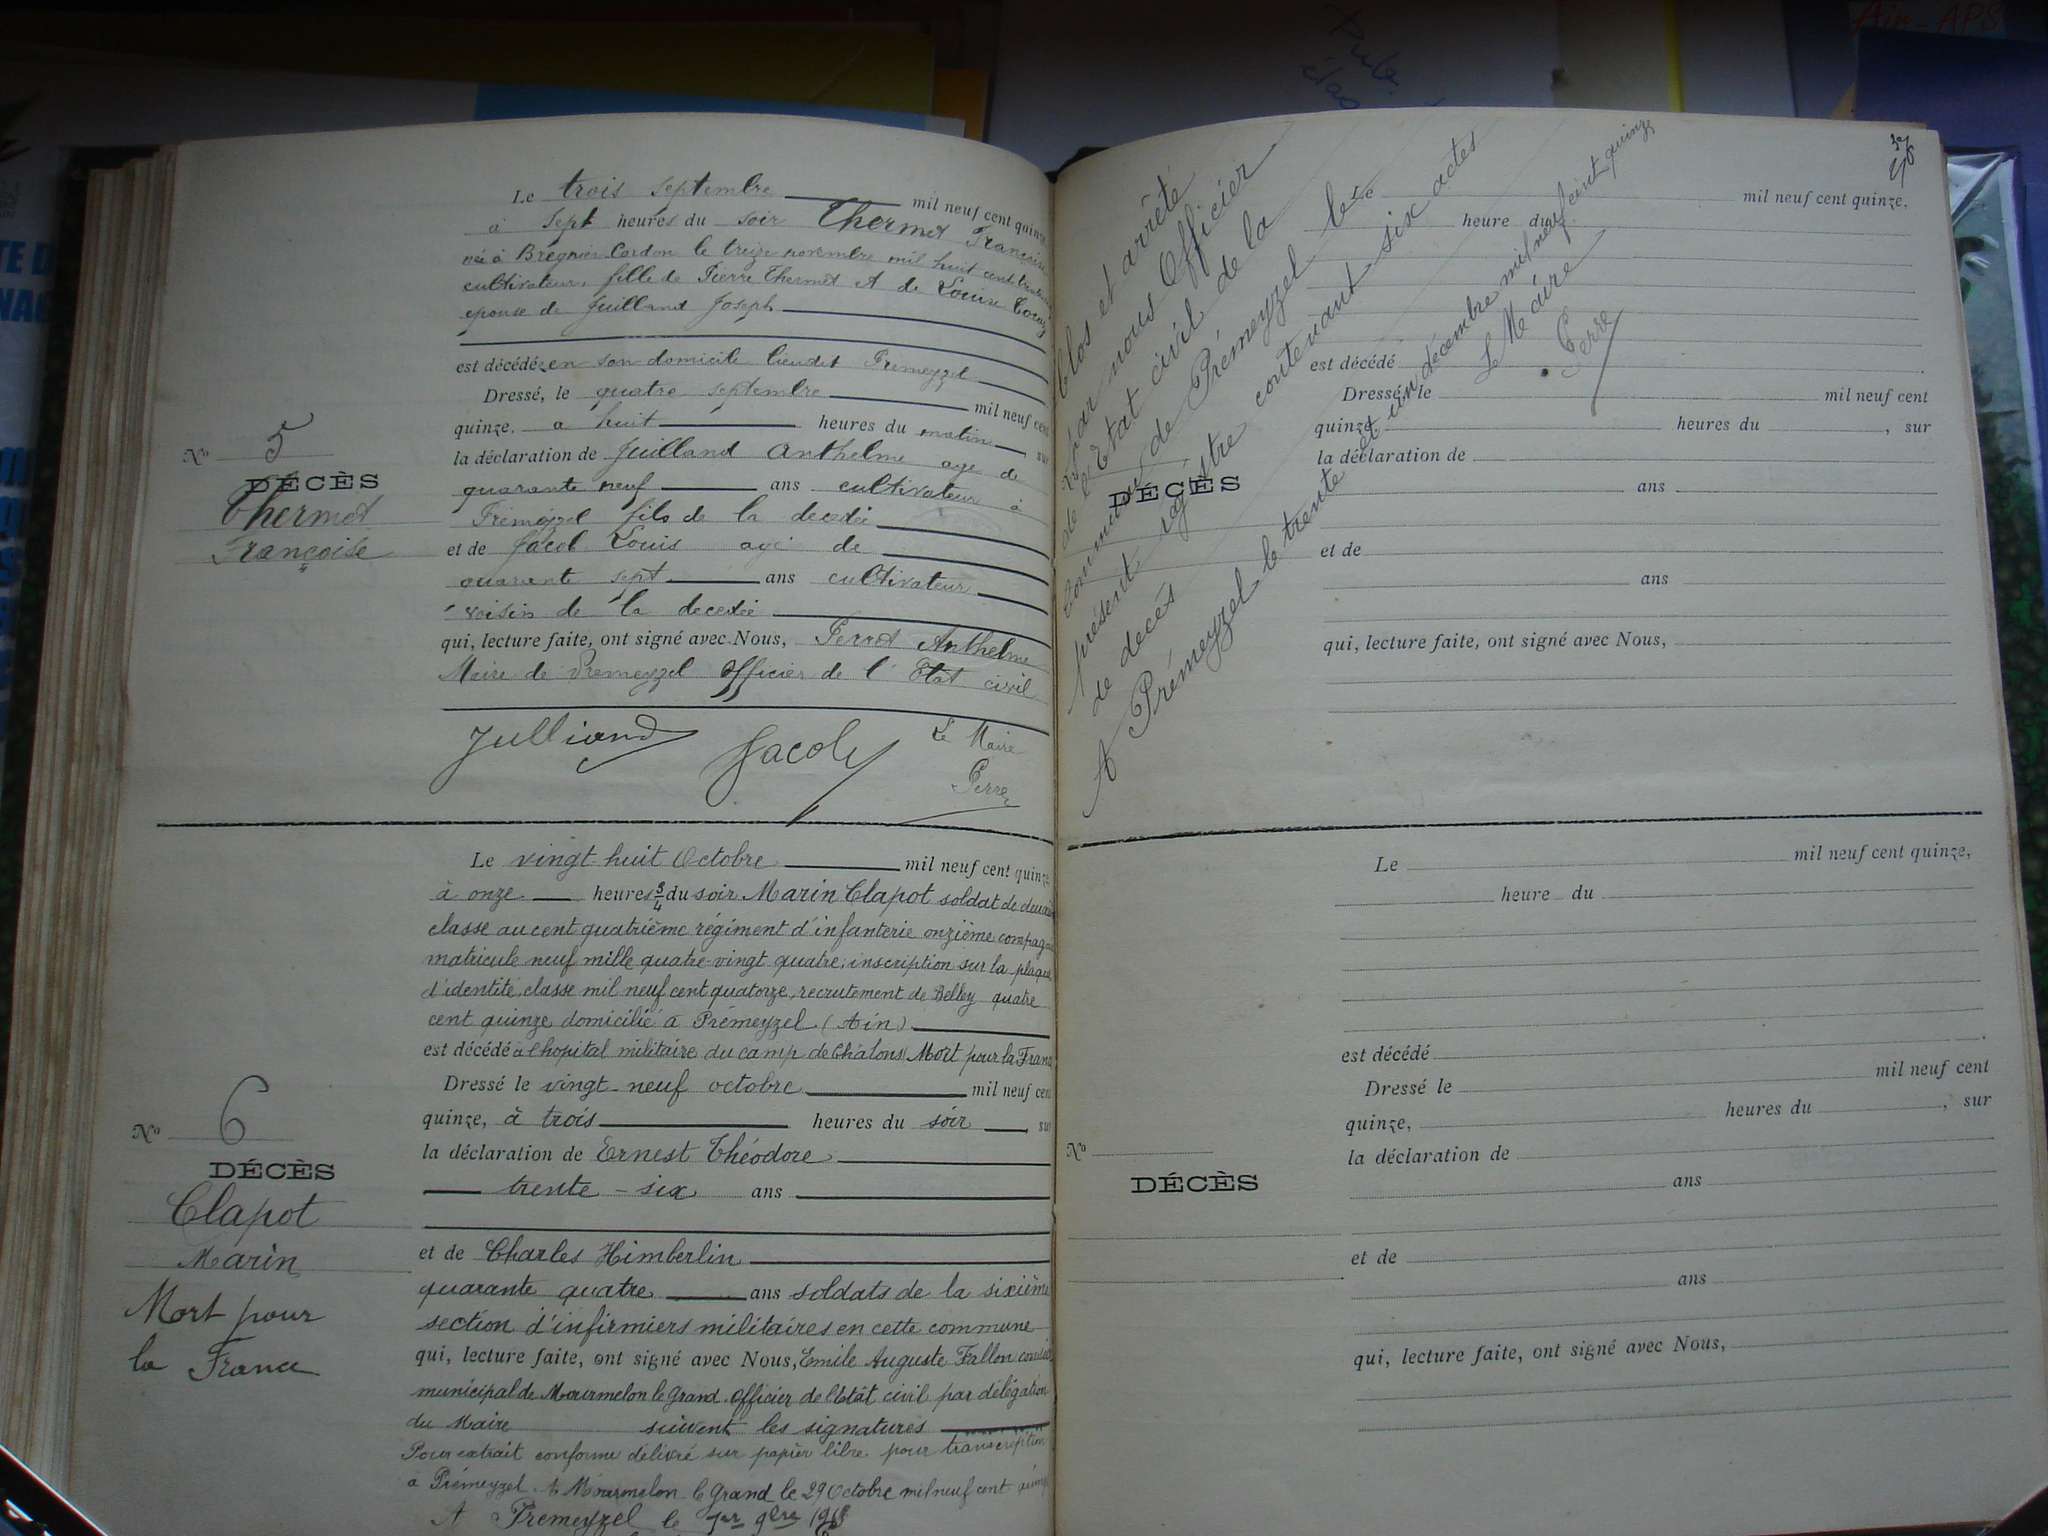 Le trois septembre mil neuf cent quinze
à sept heures du soir Thermet Françoise
née à Brégnier-Cordon le treize novembre mil huit cent
cultivateur, fille de Pierre Thermet et de Louise
epouse de Juilland Joseph
est décédée en son domicile lieudit Premeyzel
Dressé, le quatre septembre mil neuf cent
quinze, a huit heures du matin, sur
la déclaration de Juilland Anthelme age de
quarante neuf ans cultivateur à
Premeyzel fils de la decedée
et de Jacob Louis agé de
quarante sept ans cultivateur
voisin de la decedée
qui, lecture faite, ont signé avec Nous, Perret Anthelme
Maire de Premeyzel Officier de l'Etat civil
Julliand Jacob Le Maire
Perret
No 5
DÉCÈS
Thermet
Françoise
Le vingt huit Octobre mil neuf cent quinze
à onze heures 3/4 du soir Marin Clapot soldat de deuxième
classe au cent quatrième régiment d'infanterie onzième compagnie
matricule neuf mille quatre-vingt quatre; inscription sur la plaque
d'identité, classe mil neuf cent quatorze, recrutement de Belley quatre
cent quinze domicilié à Prémeyzel (Ain)
est décédé à l'hopital militaire du camp de Châlons Mort pour la France
Dressé le vingt-neuf octobre mil neuf cent
quinze, à trois heures du soir, sur
la déclaration de Ernest Théodore
trente-six ans
et de Charles Himberlin
quarante quatre ans soldats de la sixième
section d'infirmiers militaires en cette commune
qui, lecture faite, ont signé avec Nous, Emile Auguste Fallon conseiller
municipal de Mourmelon le Grand Officier de l'Etat civil par délégation
du Maire suivent les signatures
Pour extrait conforme délivré sur papier libre pour transcription
a Prémeyzel. A Mourmelon le Grand le 29 Octobre mil neuf cent quinze
A Premeyzel le 1er 9bre
No 6
DÉCÈS
Clapot
Marin
Mort pour
la France
Clos et arrêté
par nous Officier
de l'Etat civil de la
commune de Prémeyzel le
présent registre contenant six actes
de decés
A Prémeyzel le trente et un décembre mil neuf cent quinze
Le Maire
Perret
Le mil neuf cent quinze,
heure du
est décédé
Dressé, le mil neuf cent
quinze, heures du , sur
la déclaration de
ans
et de
ans
qui, lecture faite, ont signé avec Nous,
No
DÉCÈS
Le mil neuf cent quinze,
heure du
est décédé
Dressé le mil neuf cent
quinze, heures du , sur
la déclaration de
ans
et de
ans
qui, lecture faite, ont signé avec Nous,
No
DÉCÈS